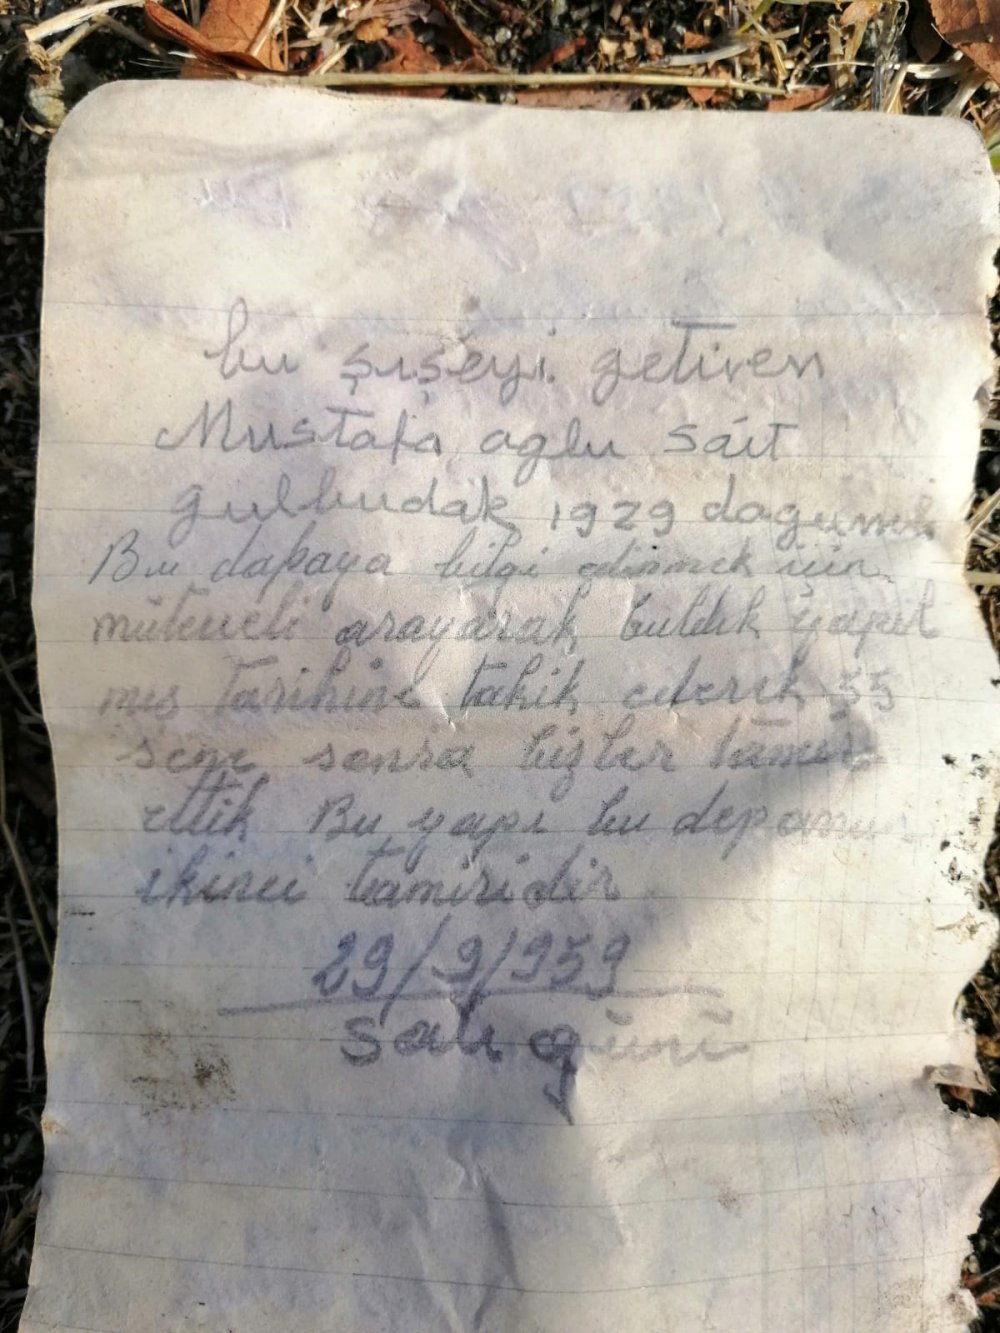 bu şışeyi getiren
Mustafa oglu sait
gulbudak 1929 dogumlu
Bu dapaya bilgi edinmek için
müteveli arayarak bulduk yapıl
mış tarihine tahik ederek 55
sene sonra bizler tamir
ettik Bu yapı bu depanun
ikinci tamiridir
29/9/959
salı günü